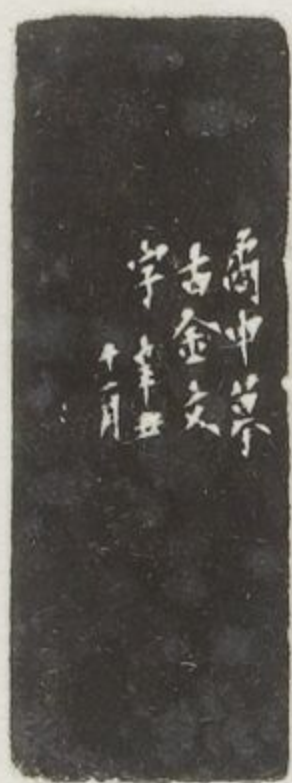 中摹
古金文
字辛丑
十一月